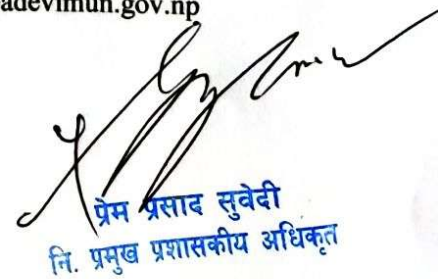 adevimun.gov.np
प्रेम प्रसाद सुवेदी
नि. प्रमुख प्रशासकीय अधिकृत